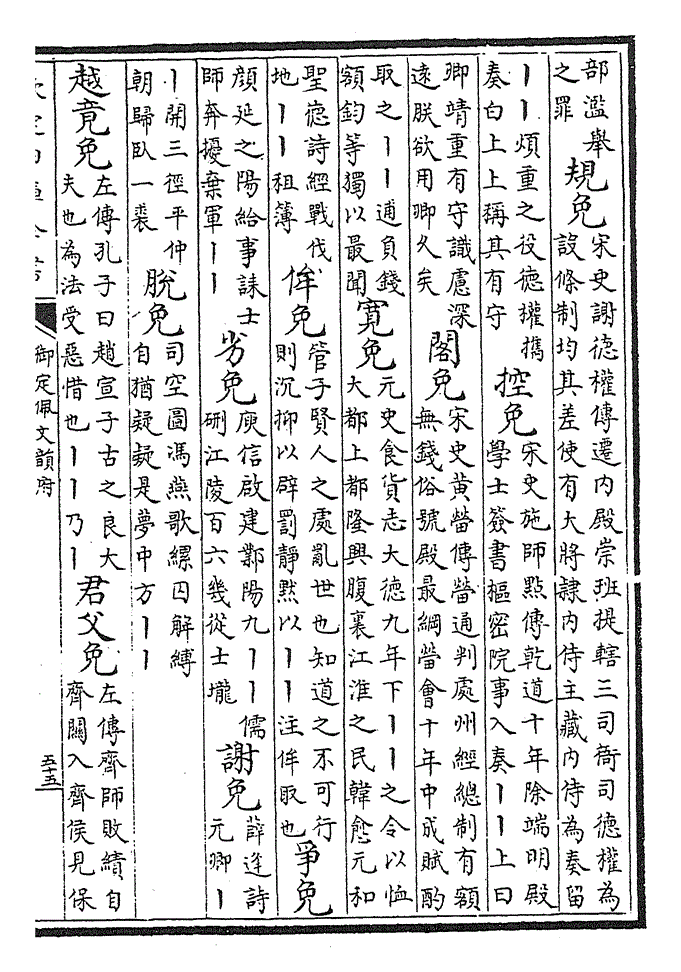 部濫舉
之罪
規免
宋史謝德權傳遷内殿崇班提轄三司衙司德權為
設條制均其差使有大將隸内侍主藏内侍為奏留
丨丨煩重之役德權攜
奏白上上稱其有守
控免
宋史施師點傳乾道十年除端明殿
學士簽書樞密院事入奏丨丨上曰
卿靖重有守識慮深
遠朕欲用卿久矣
閣免
宋史黄營傳營通判處州經總制有額
無錢俗號殿最綱營會十年中成賦酌
取之丨丨逋負錢
額鈞等獨以最聞
寛免
元史食貨志大德九年下丨丨之令以恤
大都上都隆興腹裏江淮之民韓愈元和
聖德詩經戰伐
地丨丨租簿
侔免
管子賢人之處亂世也知道之不可行
則沉抑以辟罰靜黙以丨丨注侔取也
爭免
顔延之陽給事誄士
師奔擾棄軍丨丨
劣免
庾信啟建鄴陽九丨丨儒
硎江陵百六幾從士壠
謝免
薛逢詩
元卿丨
丨開三徑平仲
朝歸臥一裘
脫免
司空圖馮燕歌縲囚解縛
自猶疑疑是夢中方丨丨
越竟免
左傳孔子曰趙宣子古之良大
夫也為法受惡惜也丨丨乃丨
君父免
左傳齊師敗績自
齊關入齊侯見保
御定佩文韻府
五十五